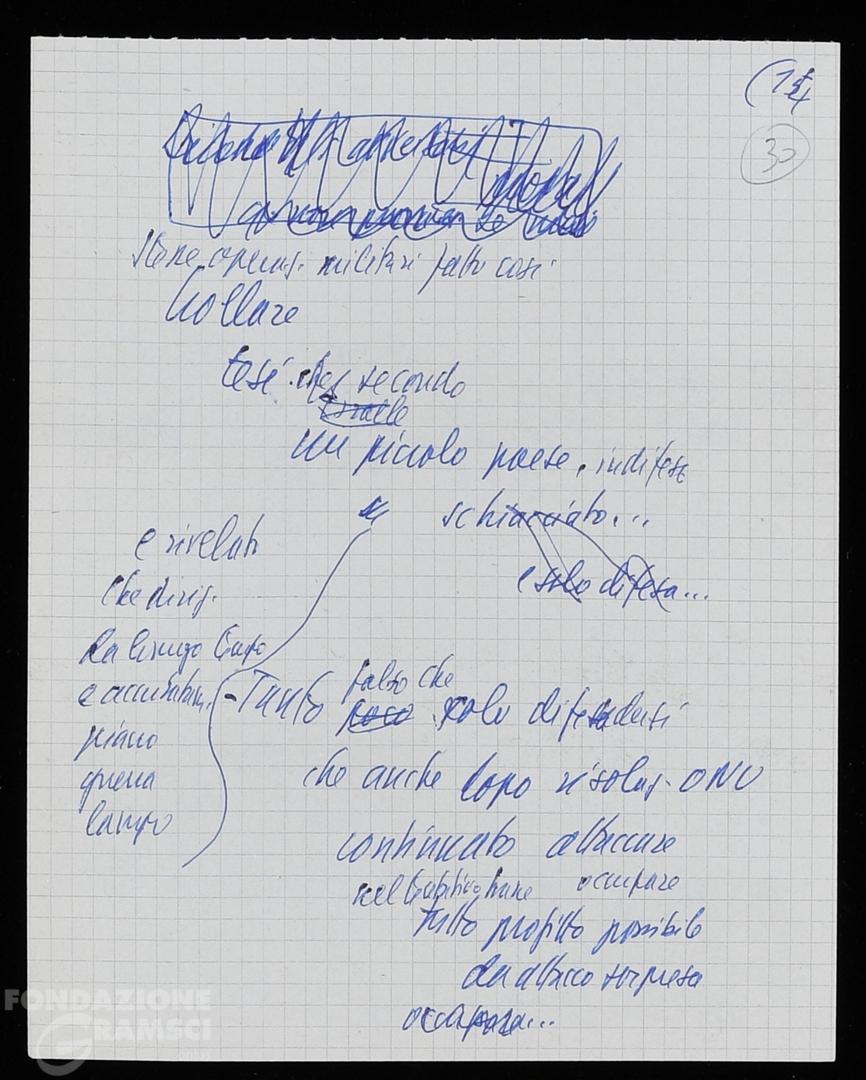 30
militari fatto così
crollare
tesi che secondo
Israele
un piccolo paese, indifeso
schiacciato...
e solo difesa...
e rivelato
che dirig.
da lungo tempo
e accuratam.
piano
guerra
lampo
- Tanto falso che
poco solo difendersi
che anche dopo risoluz. ONU
continuato attaccare
nel tentativo trarre occupare
tutto profitto possibile
da attacco sorpresa
FONDAZIONE
GRAMSCI